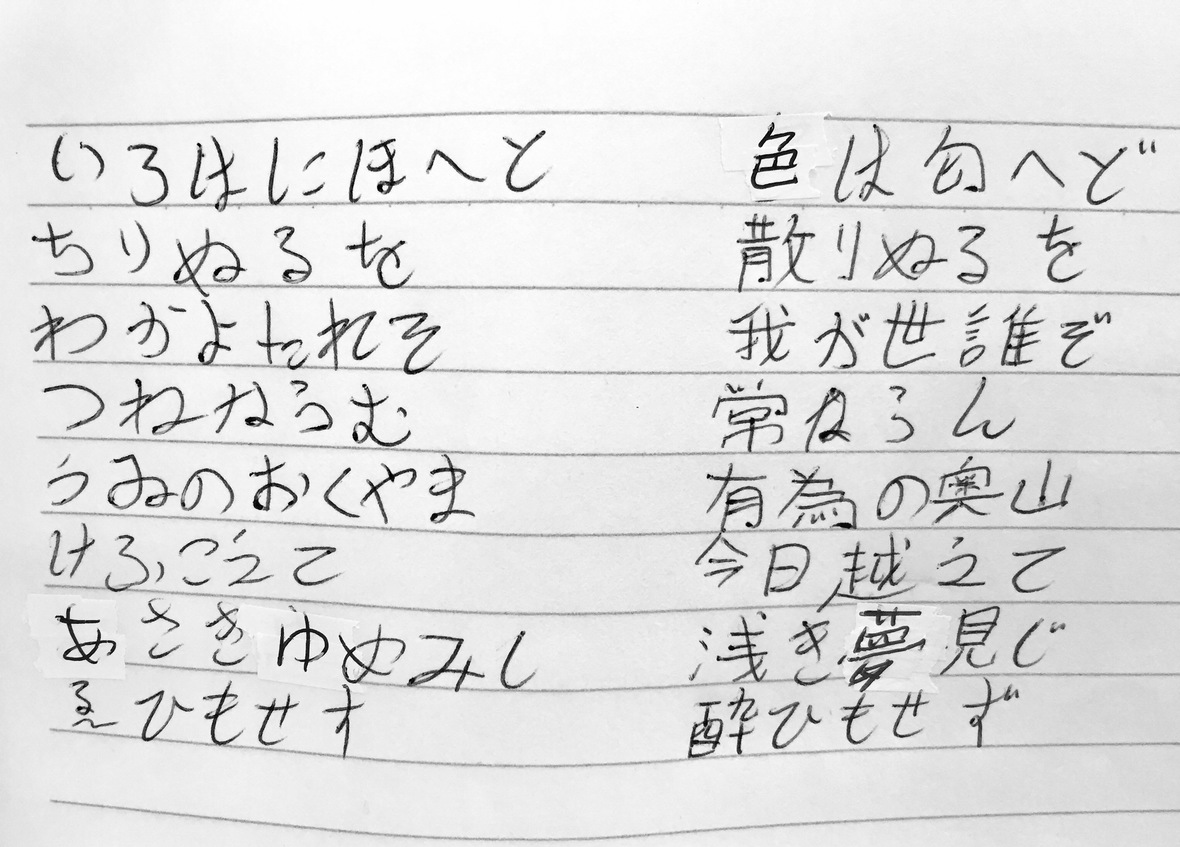 いろはにほへと 色は匂へど
ちりぬるを 散りぬるを
わかよたれそ 我が世誰ぞ
つねならむ 常ならん
うゐのおくやま 有為の奥山
けふこえて 今日越えて
あさきゆめみし 浅き夢見じ
ゑひもせす 酔ひもせず